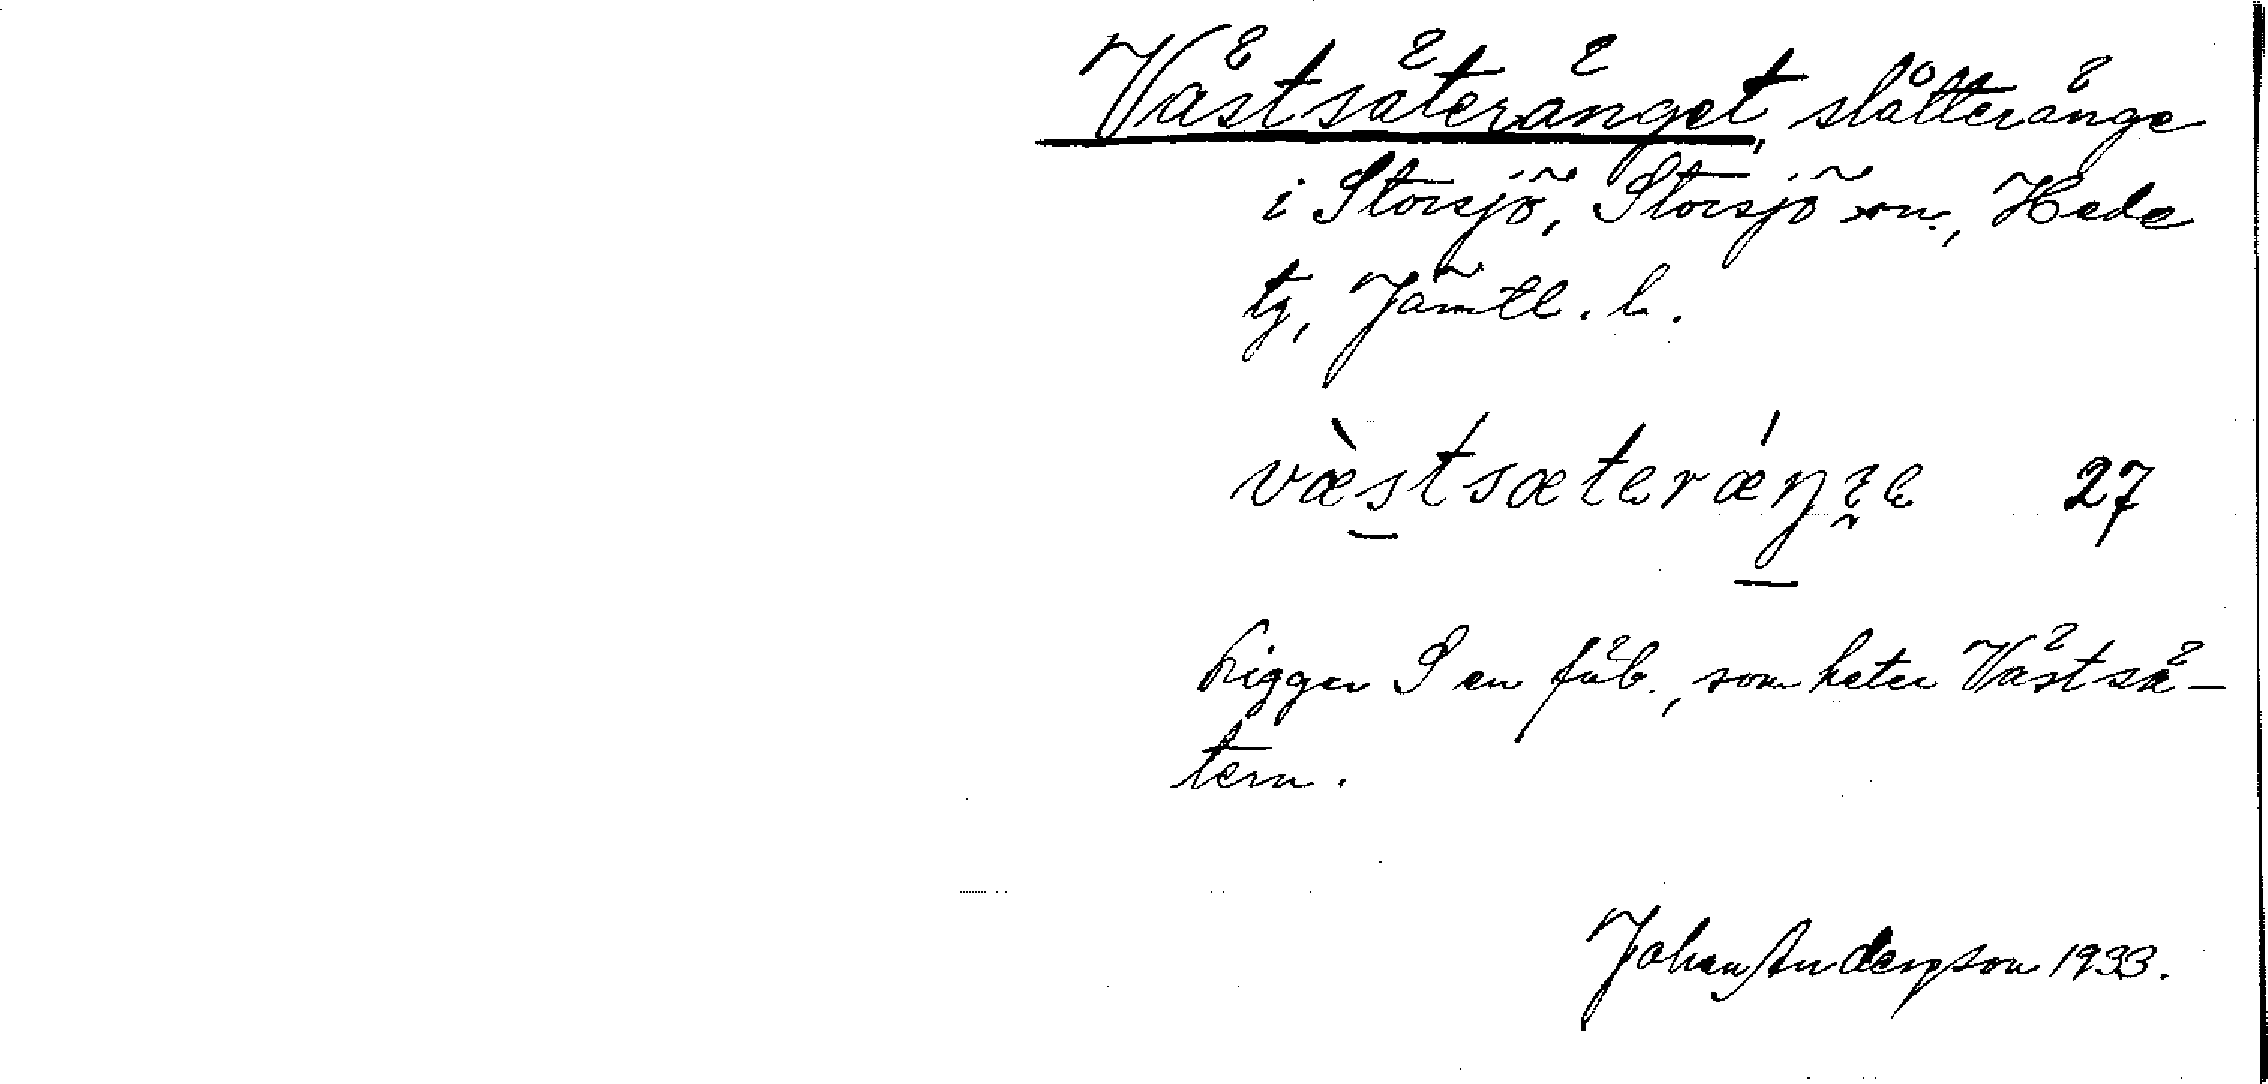 Västsäteränget, slåtteränge
i Storsjö, Storsjö sn., Hede
tg, Jämtl. l.
væ̀stsæterǽŋɛe 27
Ligger S en fäb., som heter Västsä-
tern.
Johan Anderson 1933.